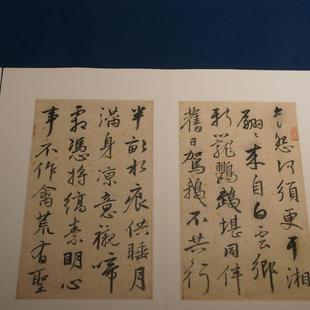 怨何須更湘
翩翩來自白雲鄉
新籠鸚鵡堪同伴
舊日駕鵝不共行
半畝水痕供睡月
滿身涼意襯啼
霜憑將縞素明心
事不作禽荒有聖